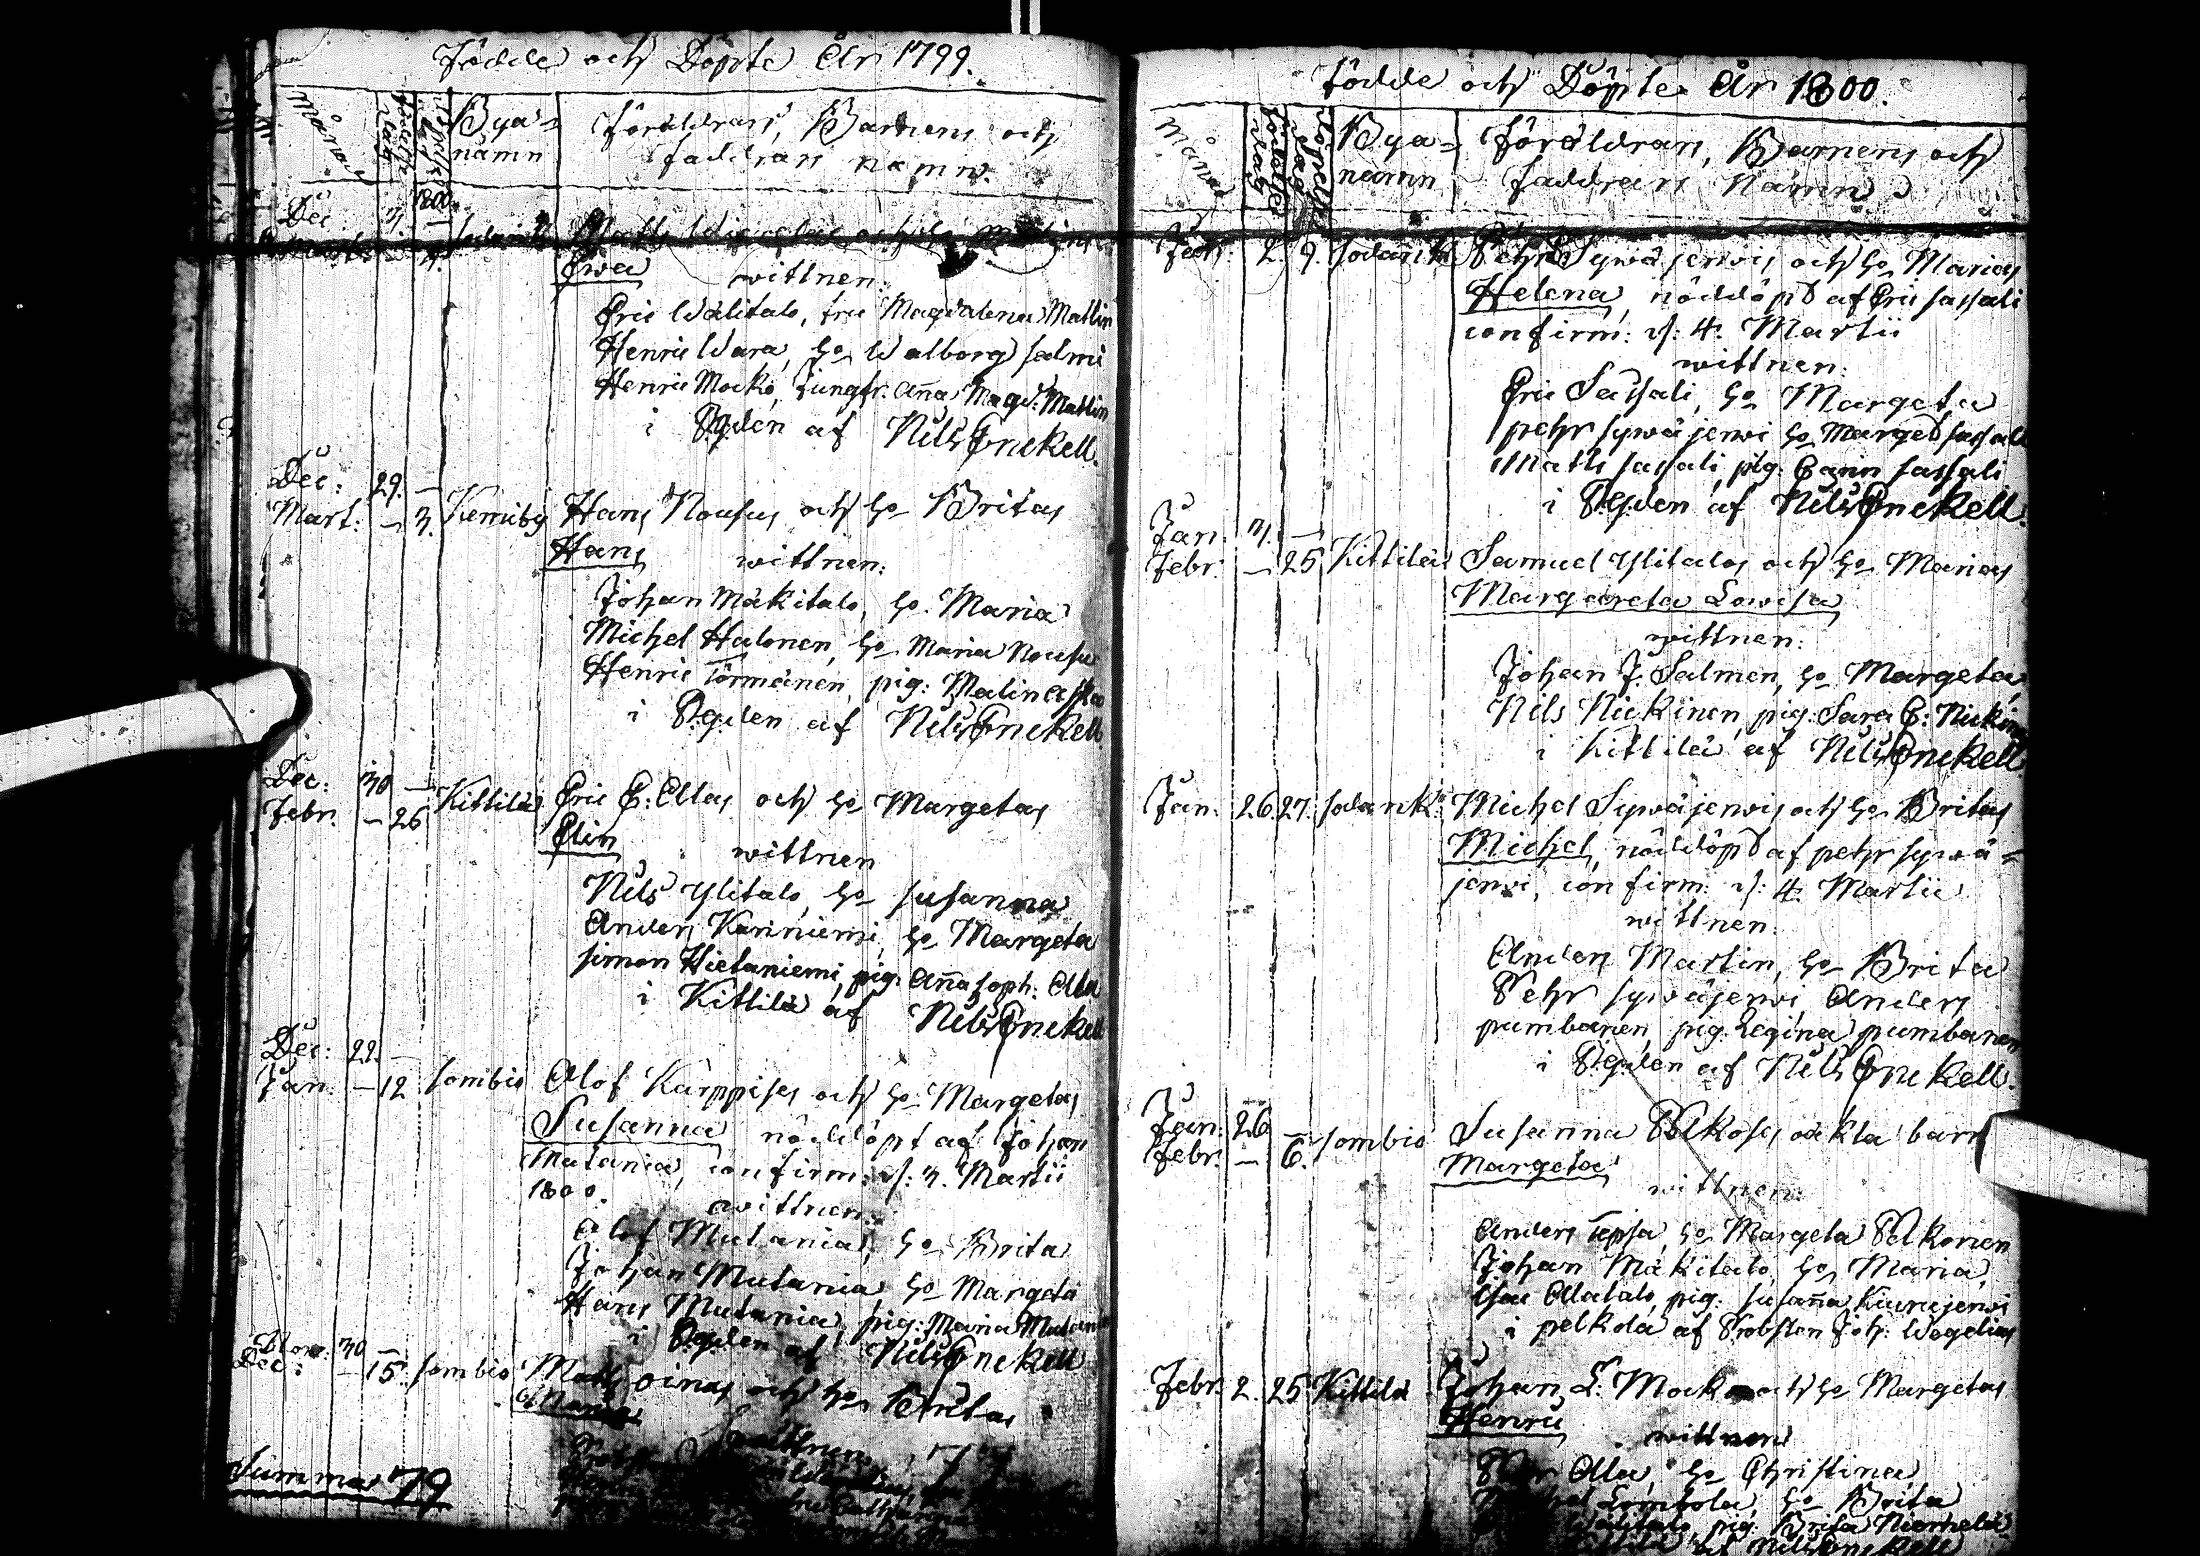 Födde och Döpte År 1799.
Månad
Födelse dag
Döpelse dag
Bya=
namn
Föräldrars, Barnens och
faddrars namn.
1800.
Dec 31. —
Martii — 4. sodank Matts
Ewa wittnen:
Eric Wälitalo, fru Magdalena Matlin
Henric Wara, ho Walborg salmi
Henric Mocko, Jungfr. Aña Magd: Matlin
i Sgden af Nils Enckell.
Dec: 29. —
Mart: — 3. Kemiby Hans Nousus och ho Britas
Hans wittnen:
Johan Mäkitalo, ho. Maria
Michel Halonen, ho Maria Nousu
Henric Törmänen, pig: Malin
i Sgden af Nils Enckell
Dec: 30 —
Febr. — 26 Kittilä Eric E: Ollas och ho Margetas
Elin wittnen
Nils Ylitalo, ho susanna
Anders Kinniemi, ho Margeta
simon Hietaniemi, pig. Aña soph: Olla
i Kittilä af Nils Enckell
Dec: 22. —
Jan. — 12 sombio Olof Kurppises och ho: Margetas
Susanna nöddöpt af Johan
Mutania, confirm: d: 3. Martii
1800. wittnen:
Olof Mutania, ho Brita
Johan Mutania ho Margeta
Hans Mutania, pig: Maria Mutan
i Sgden af Nils Enckell
Nov: 30 —
Dec: — 15. sombio Matts oinas och ho Britas
Maria
wittnen
Summa 79
Födde och Döpte År 1800.
Månad
Födelse dag
Döpelse dag
Bya=
namn
Föräldrars, Barnens och
faddrars namn
Febr. 2. 9. sodank Pehr Sywäjerwis och ho Marias
Helena, nöddöpt af Eric sassali
confirm: d: 4. Martii
wittnen:
Eric Sassali, ho Margeta
pehr sywäjerwi ho Marget sassali
Matts sassali, pig: Carin sassali
i Sgden af Nils Enckell.
Jan. 31. —
Febr. — 25 Kittilä Samuel Ylitalos och ho Marias
Margareta Lowisa
wittnen:
Johan J. Salmen, ho Margeta
Nils Nickinen, pig: Sara E: Nickin
i Kittilä af Nils Enckell
Jan. 26. 27. sodank: Michel Sywäjerwis och ho Britas
Michel, nöddöpt af pehr sywä=
jerwi, confirm: d: 4. Martii
wittnen:
Anders Martin, ho Brita
Pehr sywäjerwi, Anders
pumbanen, pig. Regina pumbanen
i Sgden af Nils Enckell.
Jan: 26 —
Febr. — 6. sombio Susanna Pelkoses oäkta barn
Margeta
wittnen:
Anders Tepsa, ho Margeta Pelkonen
Johan Mäkitalo, ho Maria,
Isac Ollatalo, pig: susaña Kiurujerwi
i pelkola af Probsten Joh: Wegelius
Febr. 2. 25 Kittilä Johan L: Mock och ho Margetas
Henric
wittnen
Pehr Olla, ho Christina
Lombola, ho Brita
Wälitalo, pig: Brita
af Nils Enckell